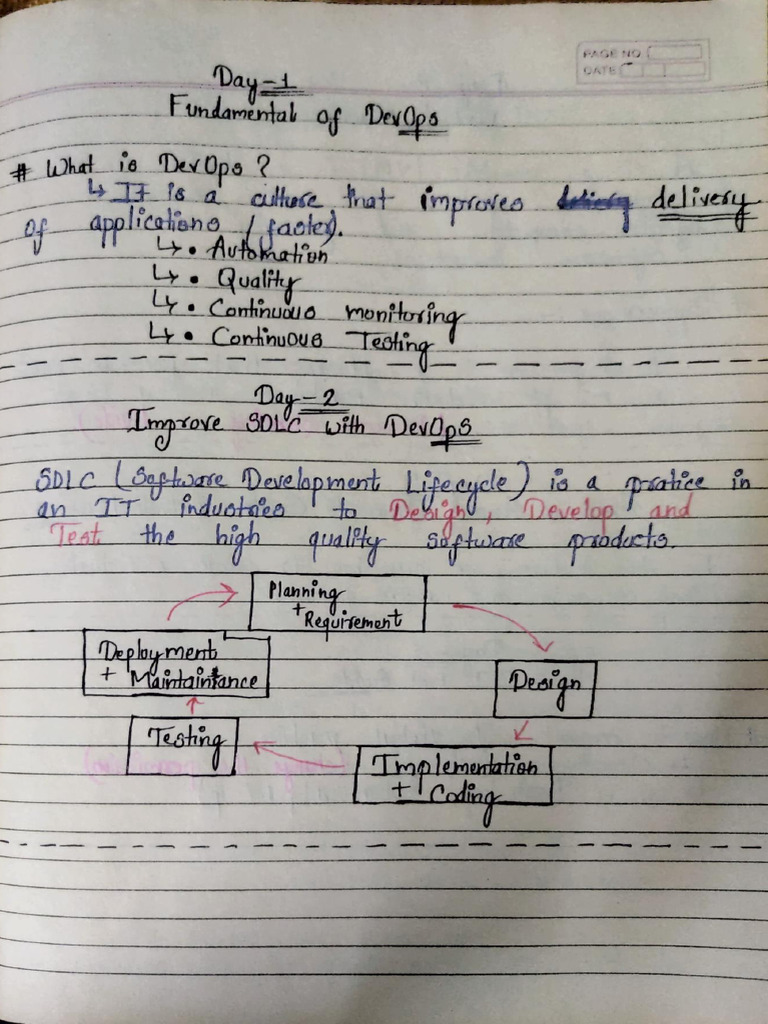 PAGE NO
DATE
Day-1
Fundamental of DevOps
# What is DevOps ?
↳ It is a culture that improves delivery
of applications (faster).
↳ • Automation
↳ • Quality
↳ • Continuous monitoring
↳ • Continuous Testing
Day-2
Improve SDLC with DevOps
SDLC (Software Development Lifecycle) is a pratice in
an IT industries to Design, Develop and
Test the high quality software products.
Planning
+ Requirement
Design
Implementation
+ Coding
Testing
Deployment
+ Maintaintance